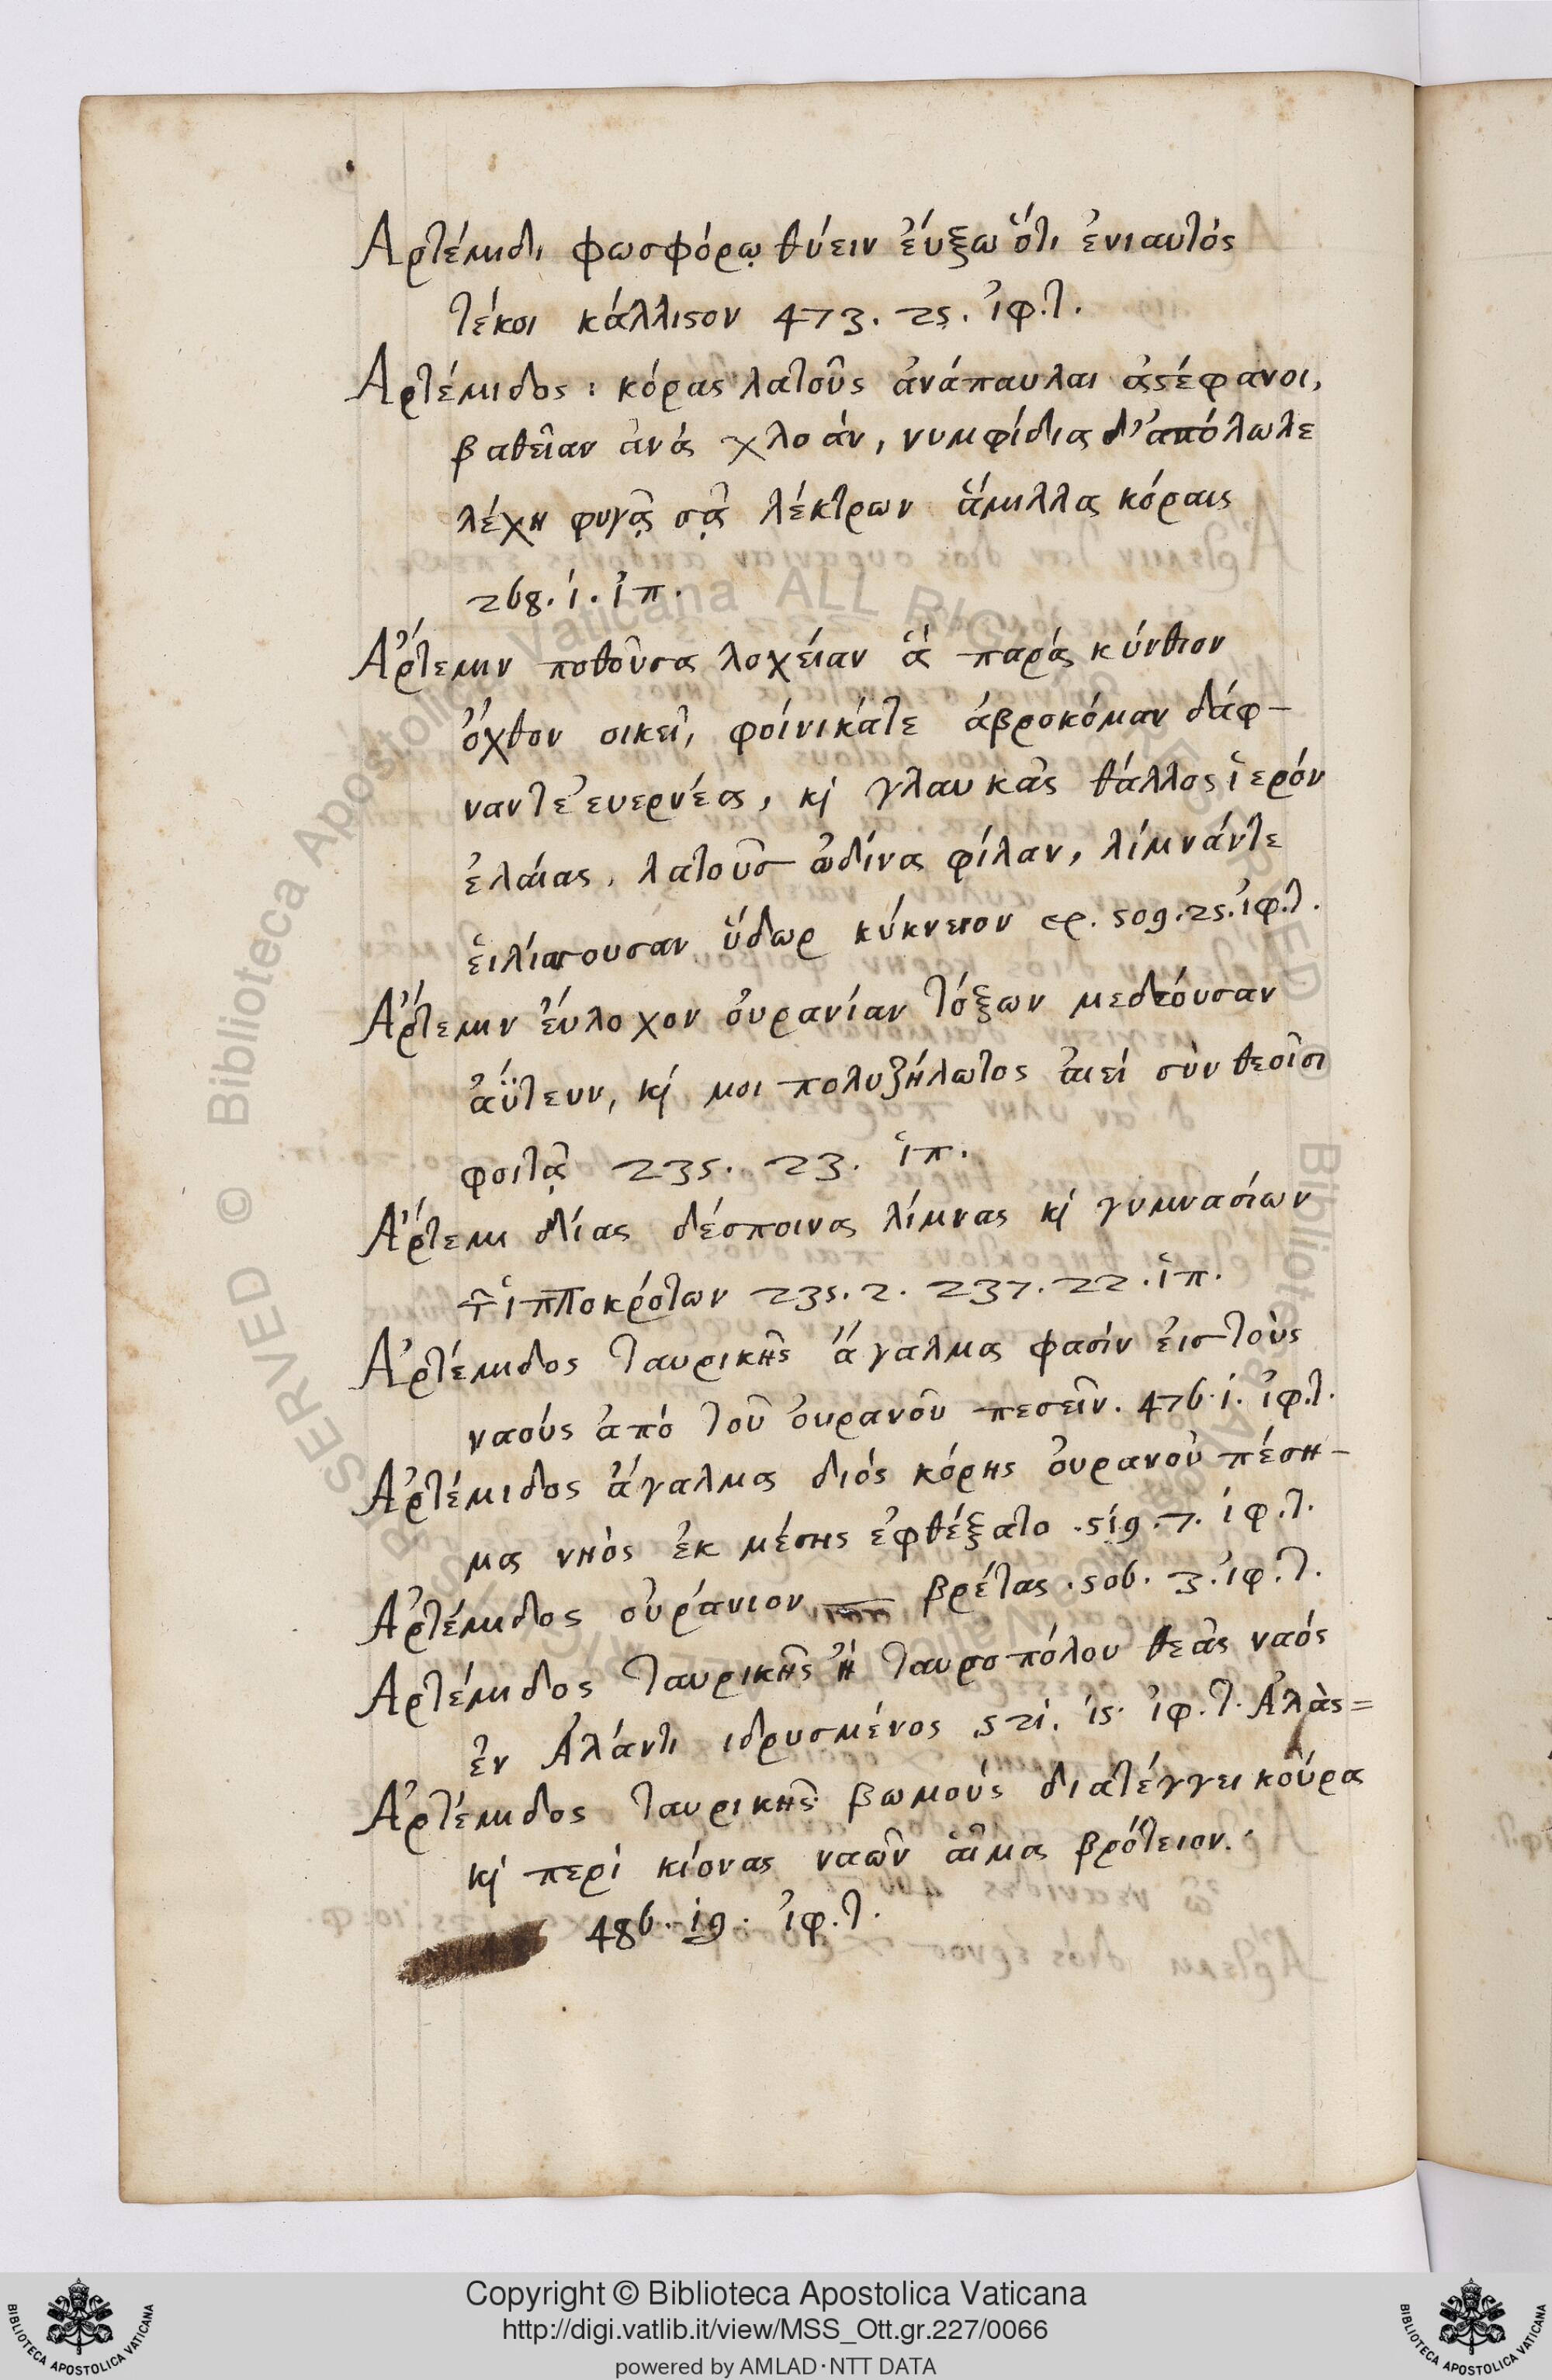 Αρτέμιδι φωσφόρῳ θύειν ἐύξω ὅτι ἐνιαυτός
τέκοι κάλλιϛον 473. 25. ἰφ.τ.
Αρτέμιδος : κόρας λατοῦς ἀνάπαυλαι ἀϛέφανοι,
βαθεῖαν ἀνά χλοάν, νυμφίδια δ' ἀπόλωλε
λέχη φυγᾷ σᾷ λέκτρων ἅμιλλα κόραις
268. i. ἱπ.
Ἄρτεμιν ποθοῦσα λοχείαν ἅ παρά κύνθιον
ὄχθον οικεῖ, φοίνικάτε ἁβροκόμαν δάφ-
ναντε ἐυερνέα, κ̀ γλαυκᾶς θάλλος ἱερόν
ἐλαίας, λατοῦσ ὠδίνα φίλαν, λίμνάντε
ἑιλίσσουσαν ὕδωρ κύκνειον 509. 25. ἰφ.τ.
Ἄρτεμιν ἐύλοχον ὀυρανίαν τόξων μεδέουσαν
ἀΰτευν, κ̀ μοι πολυζήλωτος ἀιεί σὺν θεοῖσι
φοιτᾷ 235. 23. ἱπ.
Ἄρτεμι δίας δέσποινα λίμνας κ̀ γυμνασίων
τ̃ ἱπποκρότων 235. 2. 237. 22. ἱπ.
Ἀρτέμιδος ταυρικῆς ἄγαλμα φασίν ἐισ τοὺς
ναούς ἀπό τοῦ ὀυρανοῦ πεσεῖν. 476. i. ἰφ.τ.
Ἀρτέμιδος ἄγαλμα διός κόρης ὀυρανοῦ πέση-
μα νηὸς ἐκ μέσης ἐφθέξατο . 5i9. 7. ἰφ.τ.
Ἀρτέμιδος οὐράνιον βρέτας . 506. 3. ἰφ.τ.
Αρτέμιδος ταυρικῆς ἤ ταυροπόλου θεᾶς ναός
ἐν Ἀλάντι ιδρυσμένος 52i. i5. ἰφ.τ. Ἀλὰς=
Ἀρτέμιδος ταυρικῆς βωμούς διατέγγει κούρα
κ̀ περί κίονας ναῶν αἷμα βρότειον.
486. i9. ἰφ.τ.
Copyright © Biblioteca Apostolica Vaticana
http://digi.vatlib.it/view/MSS_Ott.gr.227/0066
powered by AMLAD·NTT DATA